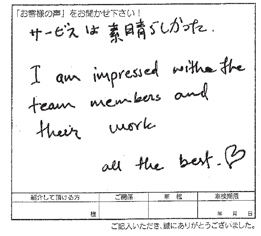 「お客様の声」をお聞かせ下さい!
サービスは素晴らしかった.
I am impressed with the
team members and
their work
all the best.
紹介して頂ける方 ご関係 車種 車検期限
様 年 月 日
ご記入いただき、誠にありがとうございました。